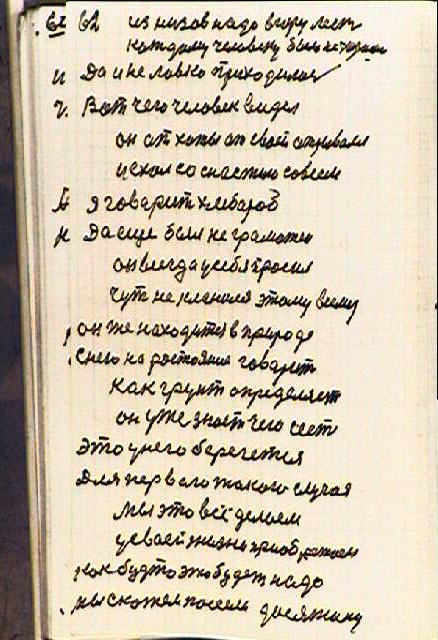 62 62 из низов надо вгору лезт
каждому человеку было не
и Да и не ловко приходилос
ч. Вот чего человек видел
он от хаты от своей отрывался
искал со снастию совсем
я говарит хлебароб
Да еще был не граможен
он всегда у себя просил
чут не клонился этому всему
он же находится в природе
с него на ростояние говарит
как грунт определяет
он уже знает чего сеет
это у него берегется
для первого такого случая
мы это всё делаем
у своей жизни приобретаем
как будто это будет надо
мы скажем посеем десятину